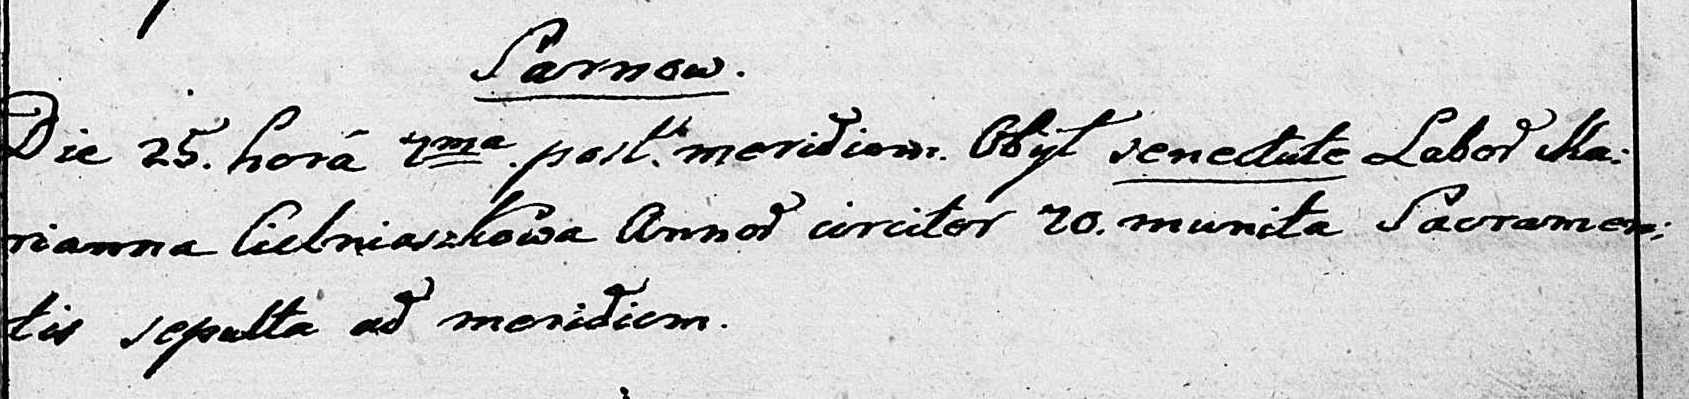 Sarnow.
Die 25. horâ 7ma. post. meridiem. Obijt senectute Labor Ma:
rianna Cielniaszkowa Annor circiter 70. munita Sacramen:
tis sepulta ad meridiem.